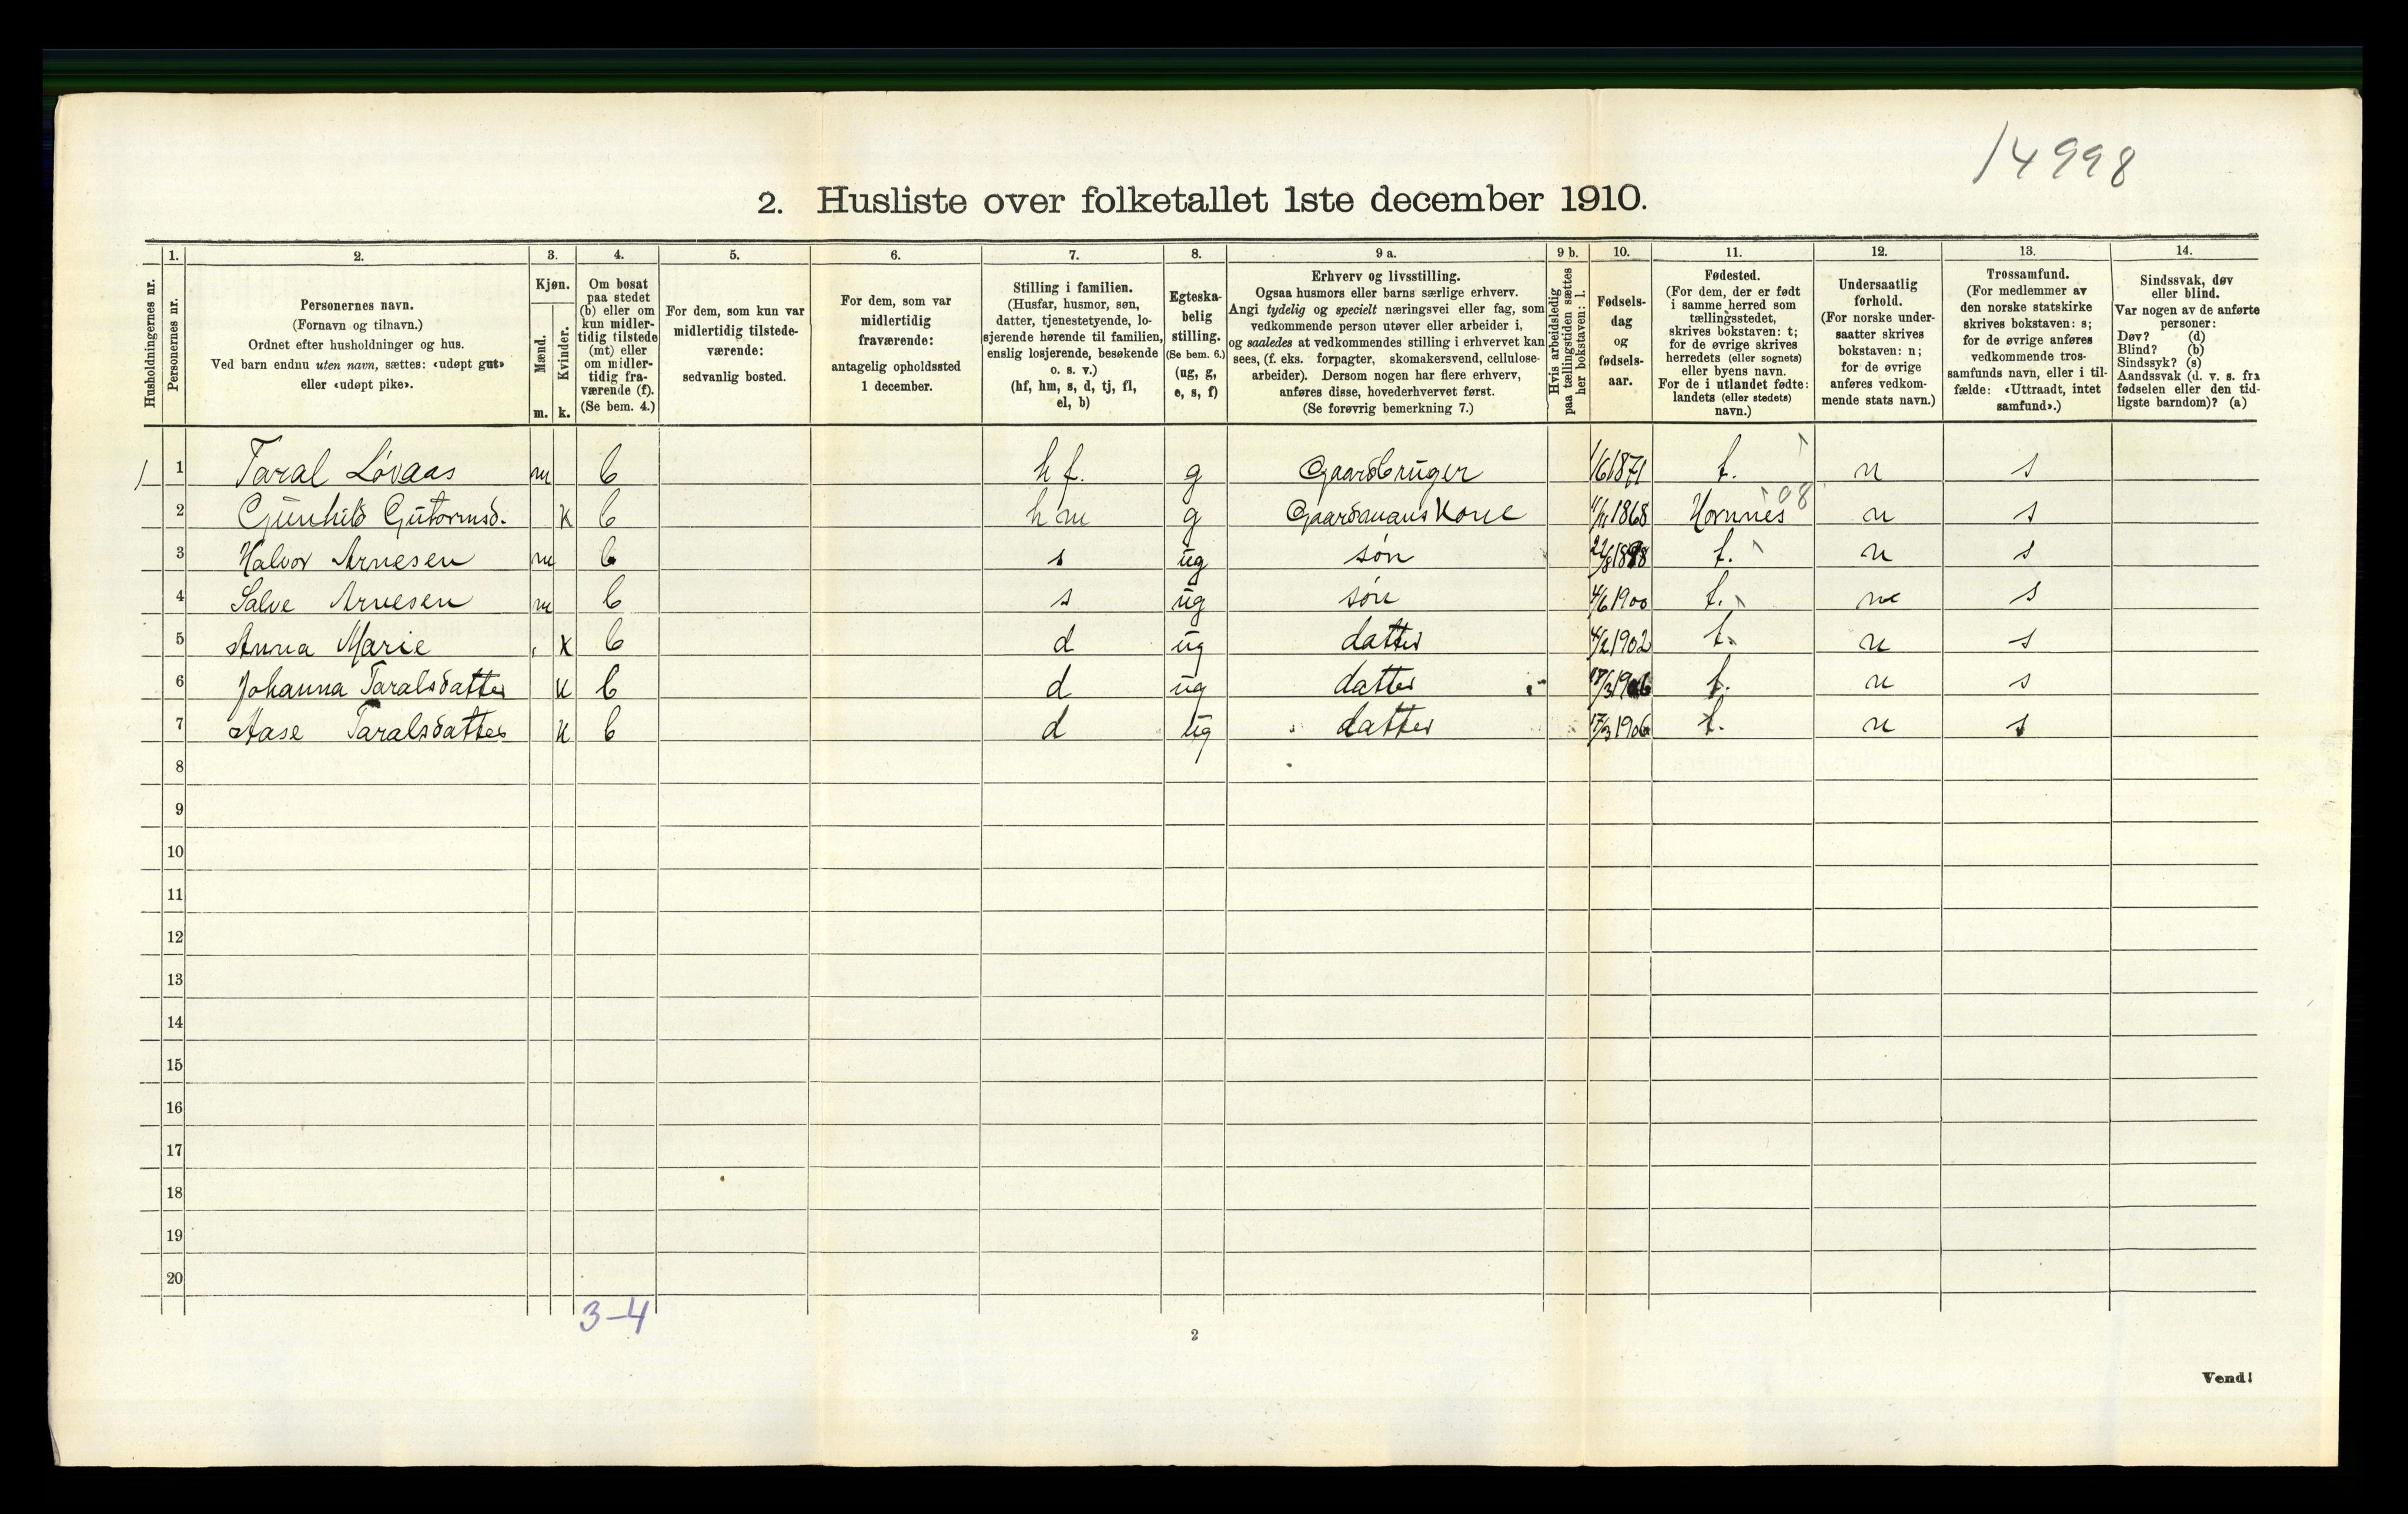 14998
2. Husliste over folketallet 1ste december 1910.
Husholdningernes nr.
1.
Personernes nr.
2.
Personernes navn.
(Fornavn og tilnavn.)
Ordnet efter husholdninger og hus.
Ved barn endnu uten navn, sættes: «udøpt gut»
eller «udøpt pike».
3.
Kjøn.
Mænd.
Kvinder.
m. k.
4.
Om bosat
paa stedet
(b) eller om
kun midler-
tidig tilstede
(mt) eller
om midler-
tidig fra-
værende (f).
(Se bem. 4.)
5.
For dem, som kun var
midlertidig tilstede-
værende:
sedvanlig bosted.
6.
For dem, som var
midlertidig
fraværende:
antagelig opholdssted
1 december.
7.
Stilling i familien.
(Husfar, husmor, søn,
datter, tjenestetyende, lo-
sjerende hørende til familien,
enslig losjerende, besøkende
o. s. v.)
(hf, hm, s, d, tj, fl,
el, b)
8.
Egteska-
belig
stilling.
(Se bem. 6.)
(ug, g,
e, s, f)
9 a.
Erhverv og livsstilling.
Ogsaa husmors eller barns særlige erhverv.
Angi tydelig og specielt næringsvei eller fag, som
vedkommende person utøver eller arbeider i,
og saaledes at vedkommendes stilling i erhvervet kan
sees, (f. eks. forpagter, skomakersvend, cellulose-
arbeider). Dersom nogen har flere erhverv,
anføres disse, hovederhvervet først.
(Se forøvrig bemerkning 7.)
9 b.
Hvis arbeidsledig
paa tællingstiden sættes
her bokstaven: l.
10.
Fødsels-
dag
og
fødsels-
aar.
11.
Fødested.
(For dem, der er født
i samme herred som
tællingsstedet,
skrives bokstaven: t;
for de øvrige skrives
herredets (eller sognets)
eller byens navn.
For de i utlandet fødte:
landets (eller stedets)
navn.)
12.
Undersaatlig
forhold.
(For norske under-
saatter skrives
bokstaven: n;
for de øvrige
anføres vedkom-
mende stats navn.)
13.
Trossamfund.
(For medlemmer av
den norske statskirke
skrives bokstaven: s;
for de øvrige anføres
vedkommende tros-
samfunds navn, eller i til-
fælde: «Uttraadt, intet
samfund».)
14.
Sindssvak, døv
eller blind.
Var nogen av de anførte
personer:
Døv? (d)
Blind? (b)
Sindssyk? (s)
Aandssvak (d. v. s. fra
fødselen eller den tid-
ligste barndom)? (a)
1 1 Taral Løvaas m b hf. g Gaardbruger 1/6 1871 t. n s
2 Gunhild Gutormsd. k b hm g Gaardmans Kone 11/11 1868 Hornnes 08 n s
3 Halvor Arnesen m b s ug søn 1898 t. n s
4 Salve Arnesen m b s ug søn 4/6 1900 t. n s
5 Anna Marie k b d ug datter 4/2 1902 t. n s
6 Johanna Taralsdatter k b d ug datter t. n s
7 Aase Taralsdatter k b d ug datter 17/3 1906 t. n s
8
9
10
11
12
13
14
15
16
17
18
19
20
3-4
2
Vend!